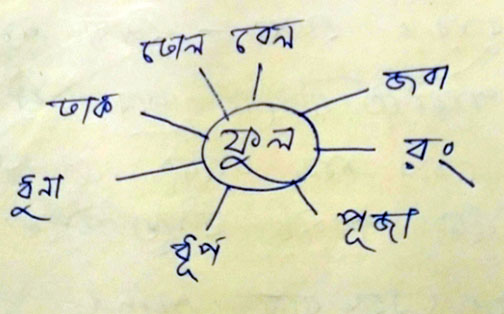 ঢোল বেল
জবা
ঢাক
ফুল
রং
ধুনা
পূজা
ধূপ